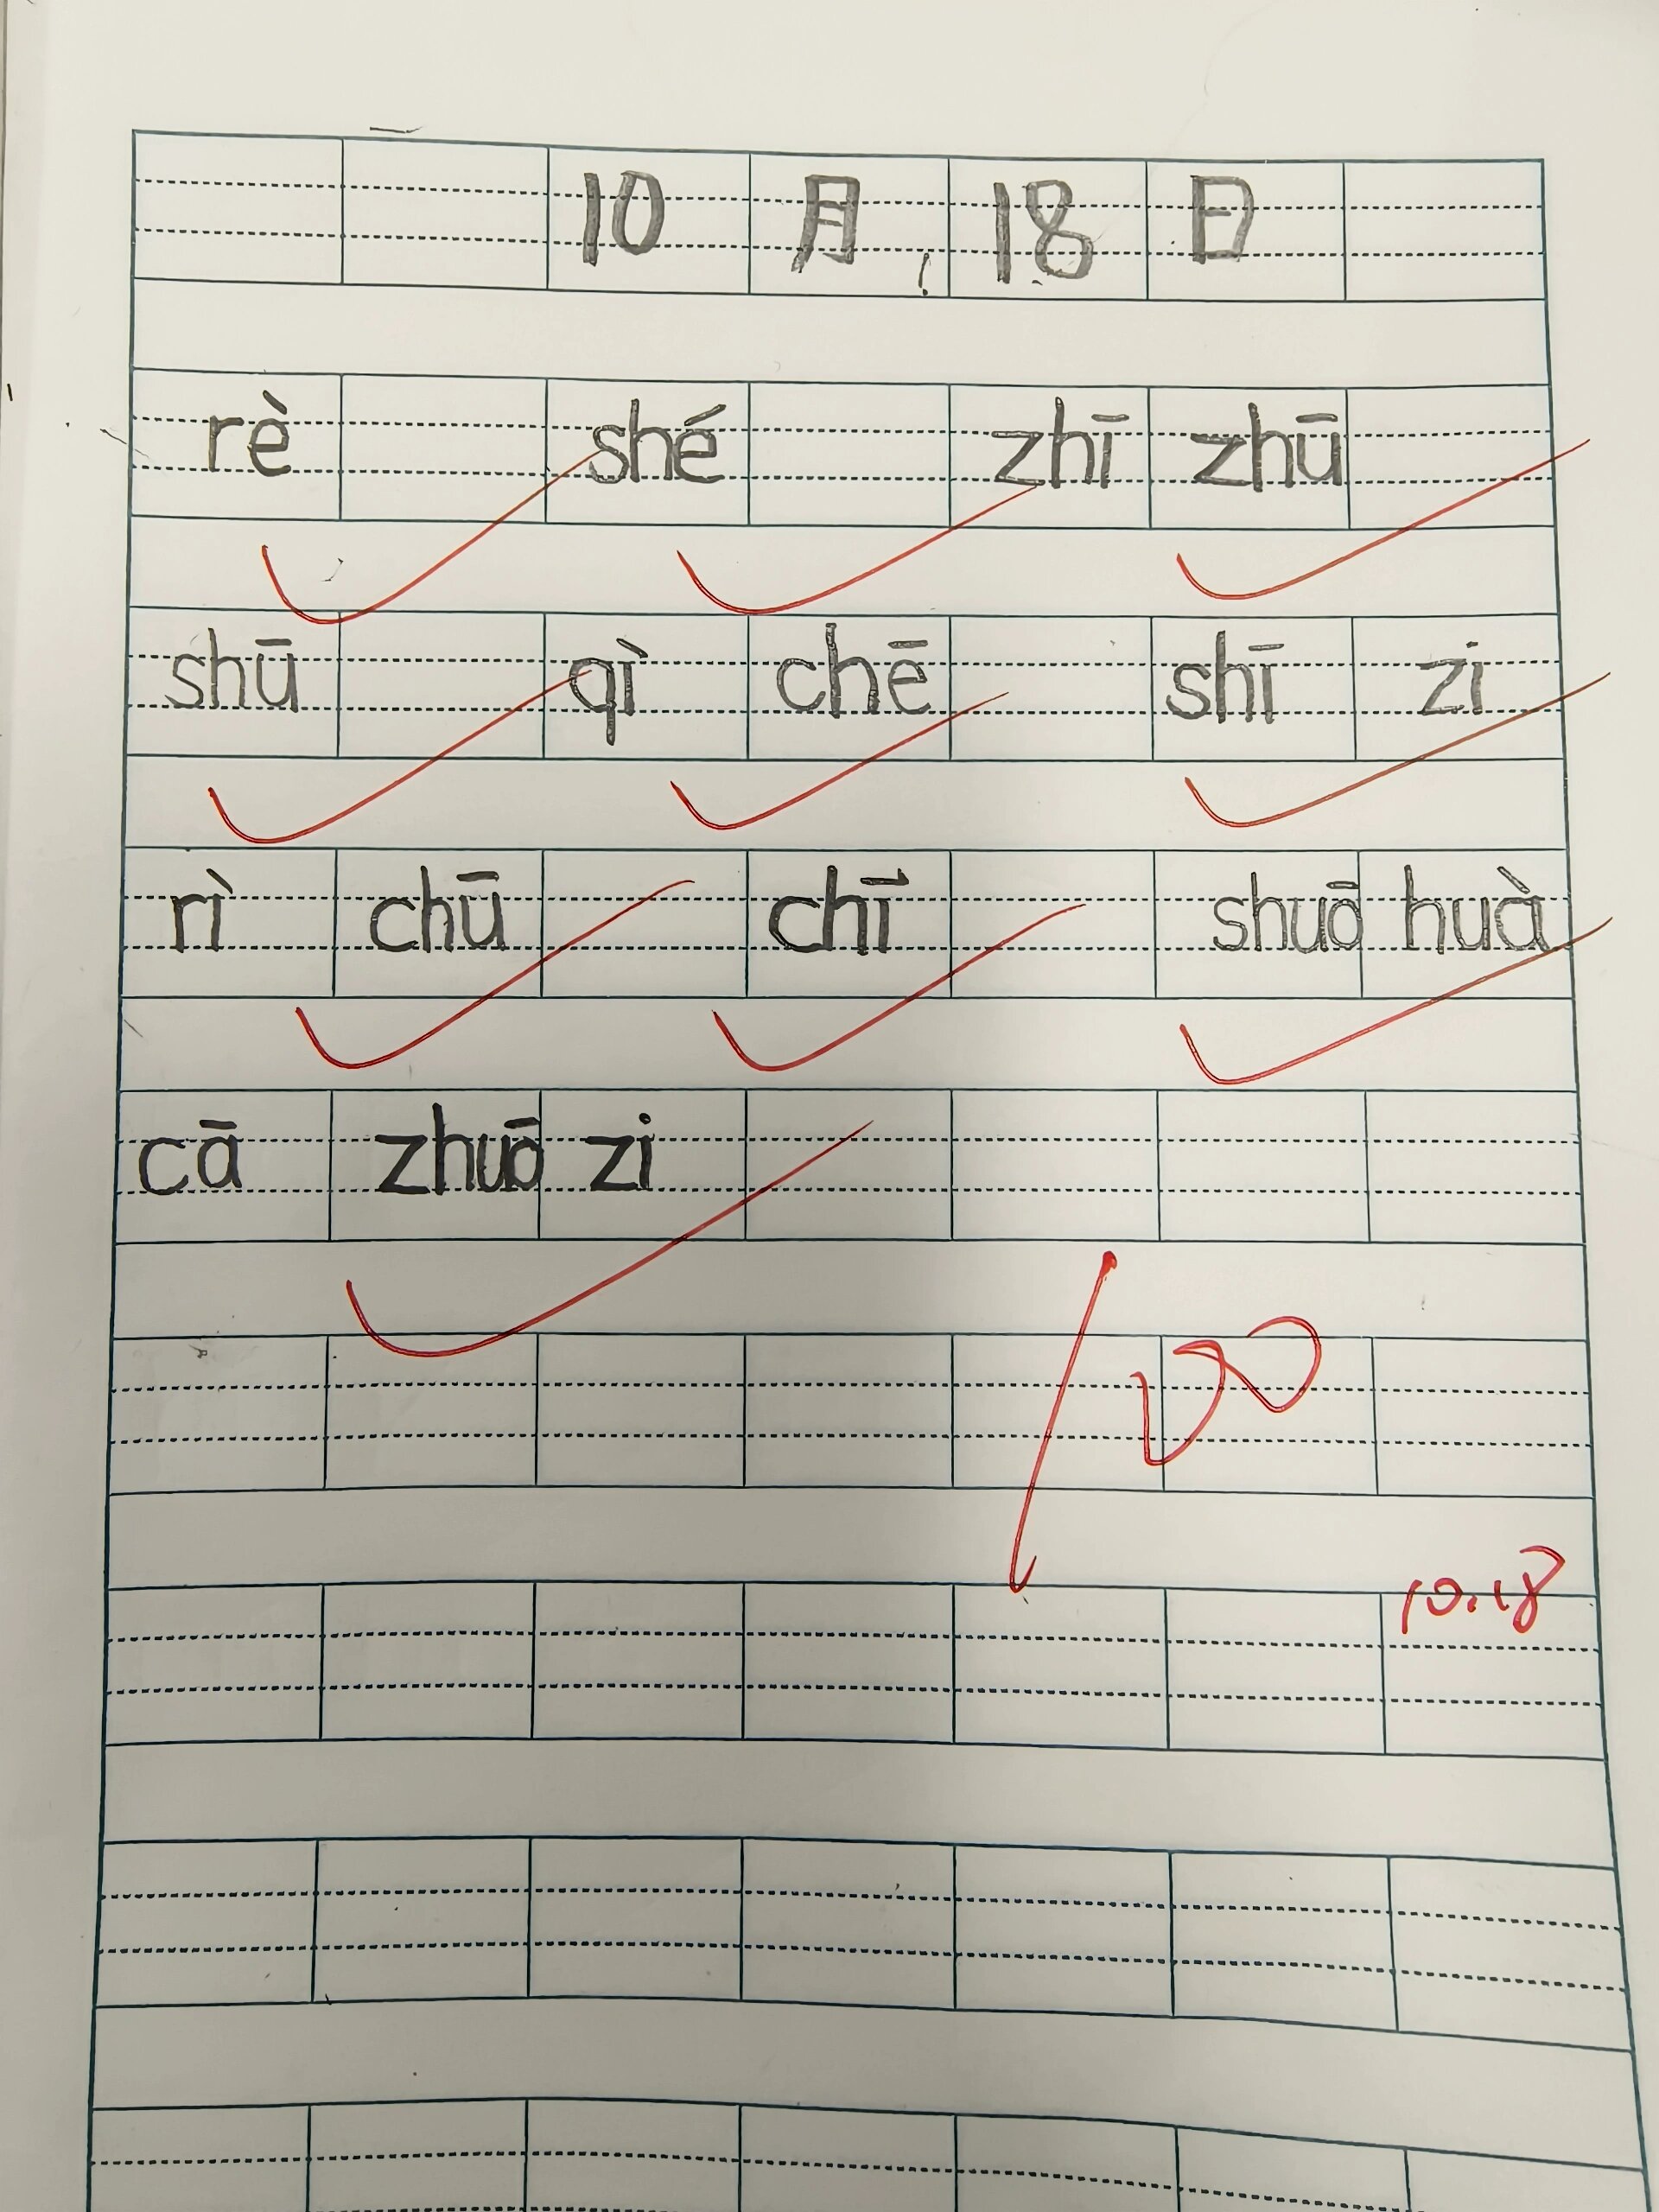 10 月 18 日
rè shé zhī zhū
shū qì chē shī zi
rì chū chī shuō huà
cā zhuō zi
100
10.18